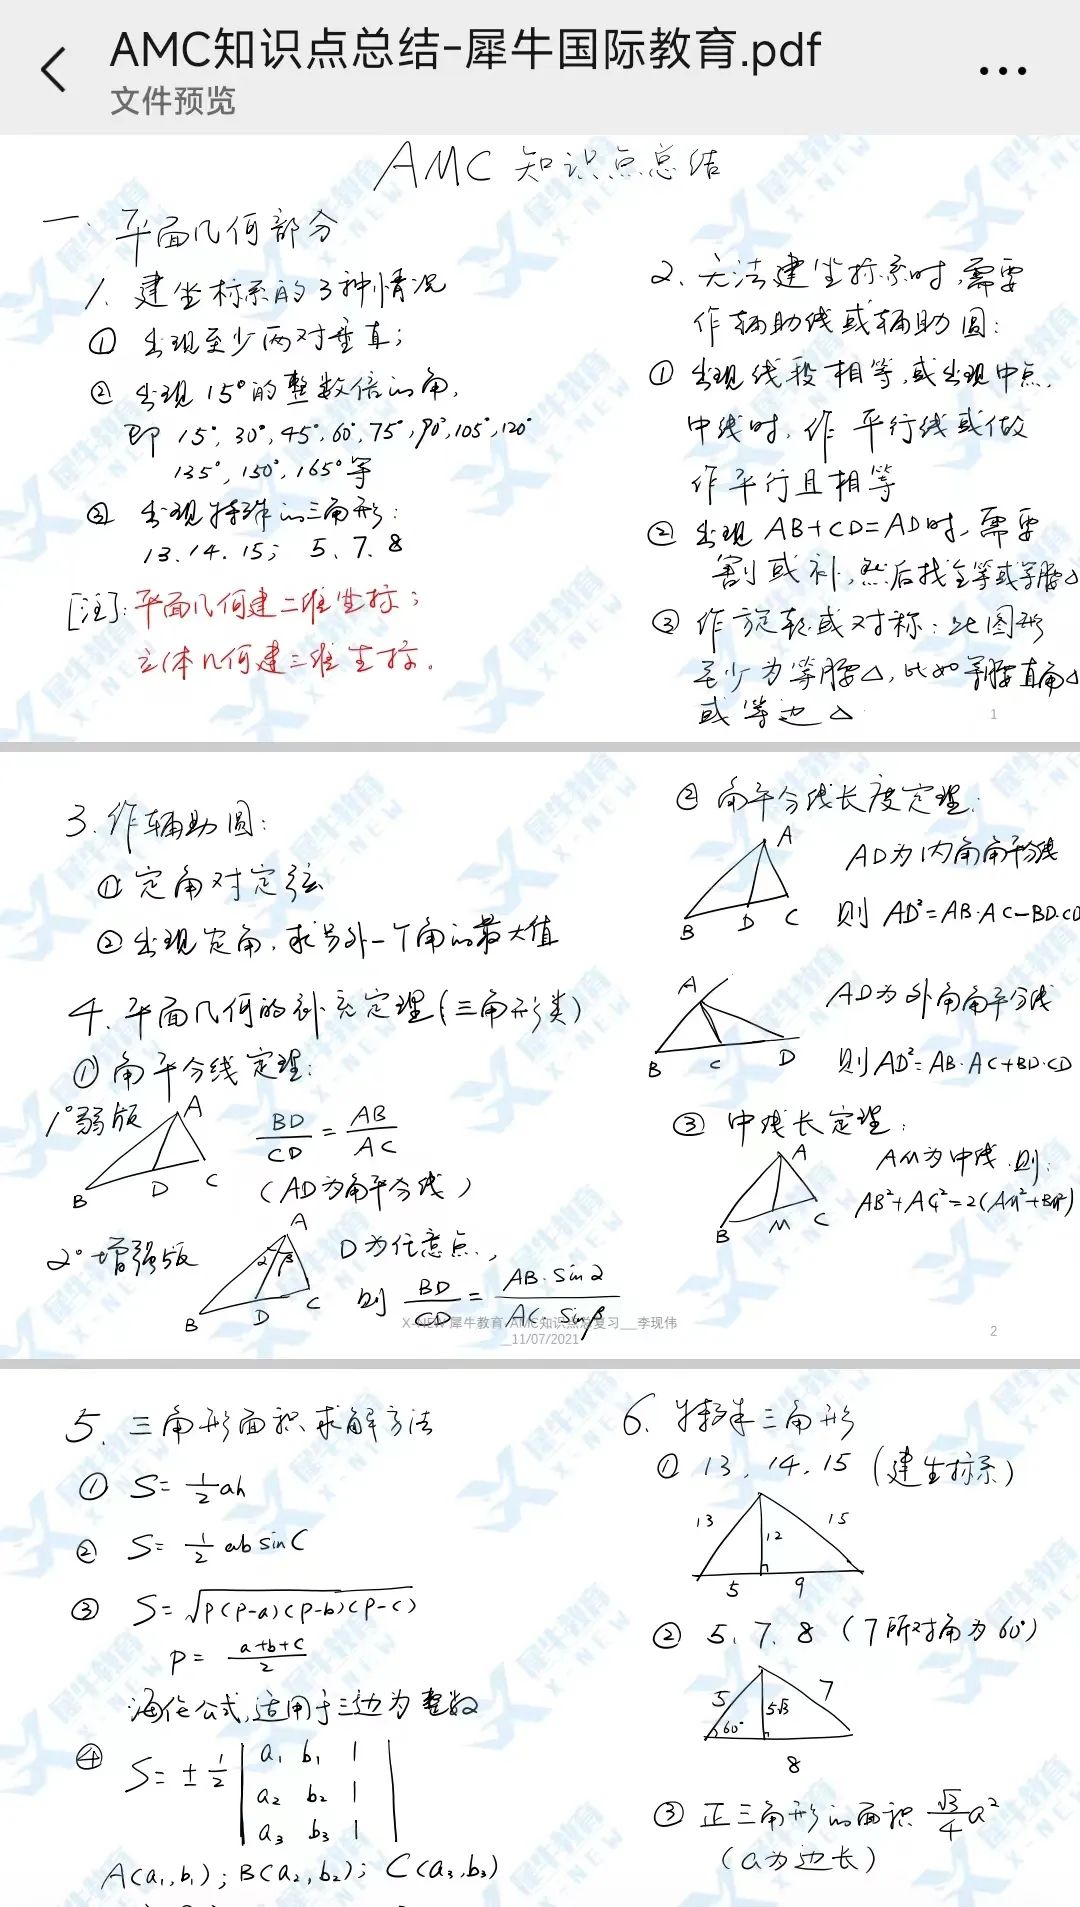 AMC知识点总结-犀牛国际教育.pdf
文件预览
AMC 知识点总结
一. 平面几何部分
1. 建坐标系的3种情况
① 出现至少两对垂直;
② 出现15°的整数倍的角,
即 15°, 30°, 45°, 60°, 75°, 90°, 105°, 120°
135°, 150°, 165°等
③ 出现特殊的三角形:
13. 14. 15; 5、7、8
[注]: 平面几何建二维坐标;
立体几何建三维坐标.
2. 无法建坐标系时,需要
作辅助线或辅助圆:
① 出现线段相等,或出现中点,
中线时,作 平行线或做
作平行且相等
② 出现 AB+CD=AD时,需要
割或补,然后找全等或等腰△
③ 作旋转或对称:此图形
至少为等腰△,比如等腰直角△
或等边△
1
3. 作辅助圆:
① 定角对定弦
② 出现定角,求另外一个角的最大值
4. 平面几何的补充定理(三角形类)
① 角平分线定理:
1° 弱版
A
B D C
BD/CD = AB/AC
(AD为角平分线)
2° 增强版
A
α β
B D C
D为任意点,
则 BD/CD = AB·sinα/AC·sinβ
② 角平分线长度定理:
A
B D C
AD为内角角平分线
则 AD²=AB·AC-BD·CD
A
B C D
AD为外角角平分线
则 AD²=AB·AC+BD·CD
③ 中线长定理:
A
B M C
AM为中线,则:
AB²+AC²=2(AM²+BM²)
X-NEW 犀牛教育 AMC知识点总复习__李现伟
__11/07/2021
2
5. 三角形面积求解方法
① S=½ah
② S=½ab sinC
③ S=√p(p-a)(p-b)(p-c)
p= (a+b+c)/2
海伦公式,适用于三边为整数
④ S=±½ | a₁ b₁ 1 |
| a₂ b₂ 1 |
| a₃ b₃ 1 |
A(a₁,b₁); B(a₂,b₂); C(a₃,b₃)
6. 特殊三角形
① 13, 14, 15 (建坐标系)
13 12 15
5 9
② 5、7、8 (7所对角为60°)
5 5√3 7
60°
8
③ 正三角形的面积 √3/4 a²
(a为边长)